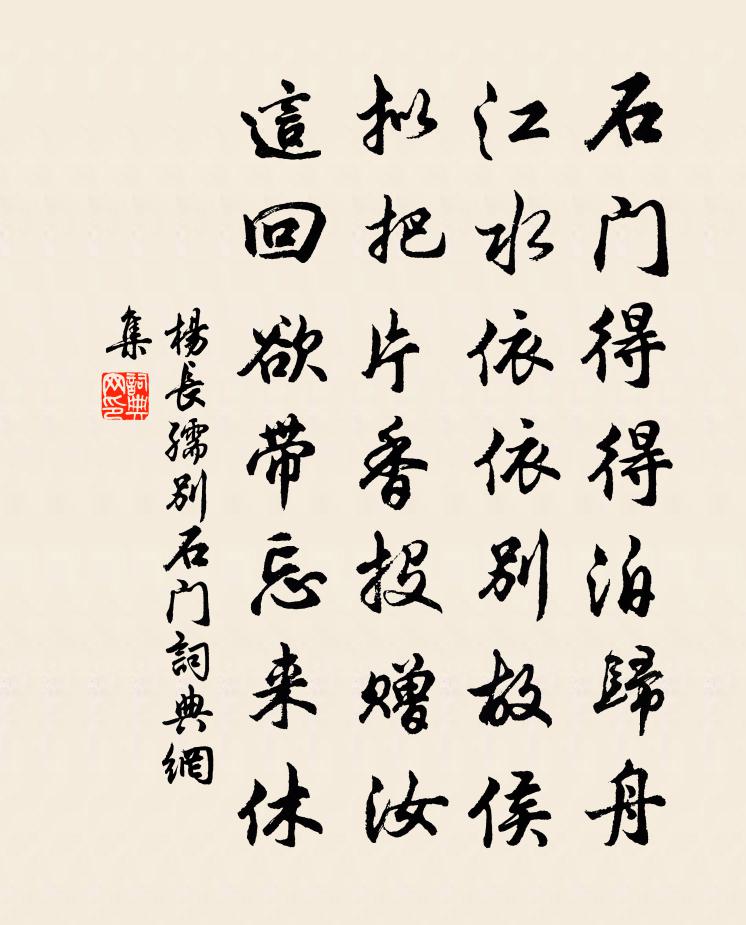 石门得得泊歸舟
江水依依别故侯
拟把片香投赠汝
這回欲带忘来休
楊長孺别石门詞典網
集
詞典
网印